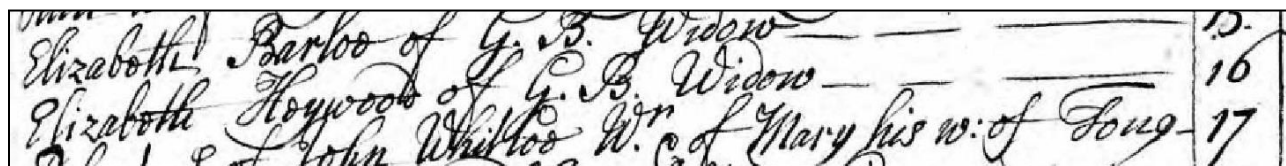 Elizabeth Barloe of G. B. Widow — — — 15.
Elizabeth Heywood of G. B. Widow — — — 16
of John Whitloe Wr. & of Mary his w: of Tong- 17